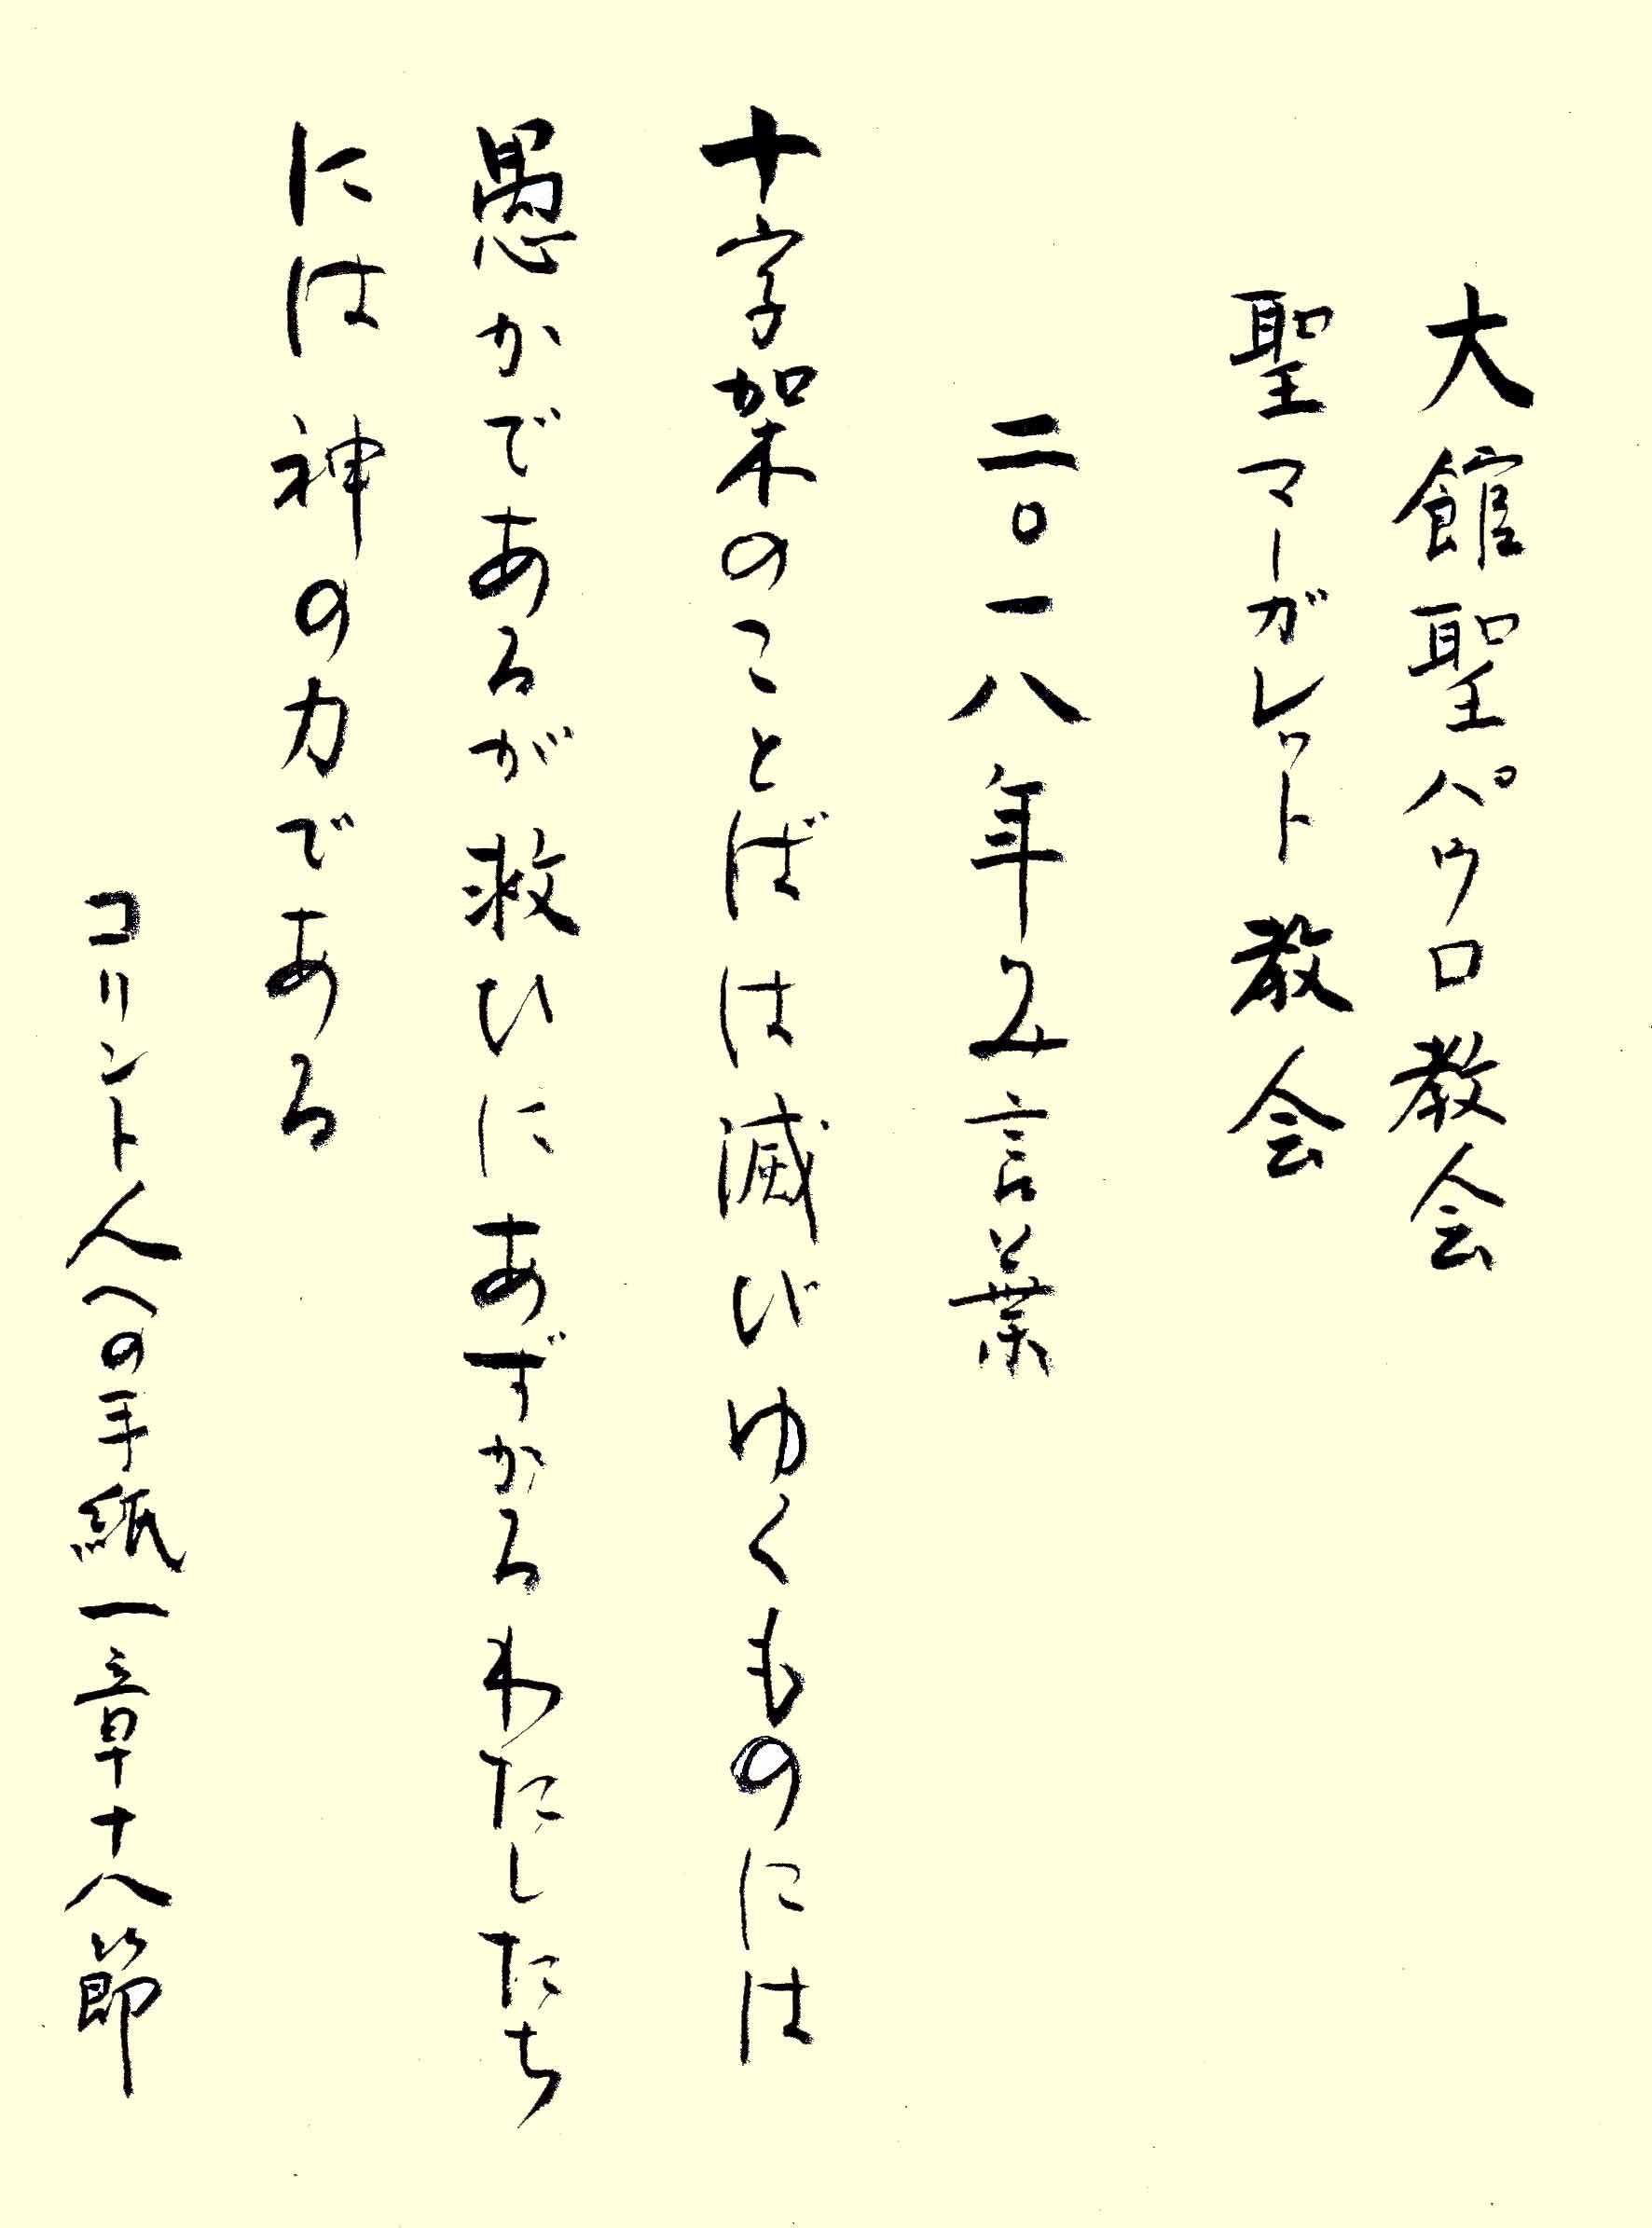 大館聖パウロ教会
聖マーガレット教会
二〇一八年み言葉
十字架のことばは滅びゆくものには
愚かであるが救ひにあずかるわたしたち
には神の力である
コリント人への手紙一章十八節